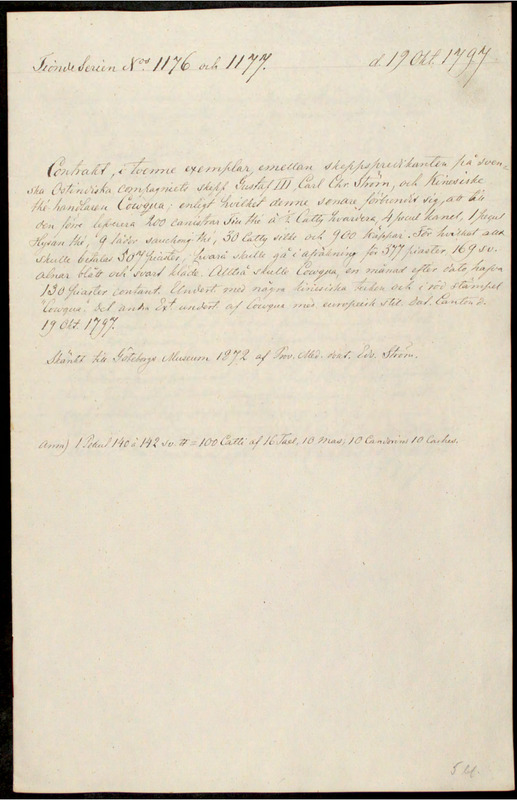 Tionde Serien Nos. 1176 och 1177.
d. 19 Okt. 1797.
Contrakt, i tvenne exemplar, emellan skeppspredikanten på sven-
ska Ostindiska compagniets skepp Gustaf III, Carl Chr. Ström, och Kinesiske
thé handlaren Cowqua; enligt hvilket denne senare förbundit sig, att till
den förre leverera 200 canistrar fin thé à 2 Catty hvardera, 4 pecul kanel, 1 pecul
Hysan thé, 9 lådor thé, 30 Catty silke och 900 käppar. För hvilket allt
skulle betalas Piaster, hvari skulle gå i afräkning för 577 piaster 169 sv.
alnar blått och svart kläde. Alltså skulle Cowqua, en månad efter dato hafva
130 Piaster contant. Undert. med några kinesiska tecken och i röd stämpel
"Cowqua", det andra Ex. undert. af Cowqua med europeisk stil. dat. Canton d.
19 Okt. 1797.
Skänkt till Göteborgs Museum 1872 af Prov. Med. Edv. Ström.
Anm) 1 Pekul 140 à 142 sv. ℔ = 100 Catti af 16 Tael, 10 Mas; 10 Candarins 10 Caches.